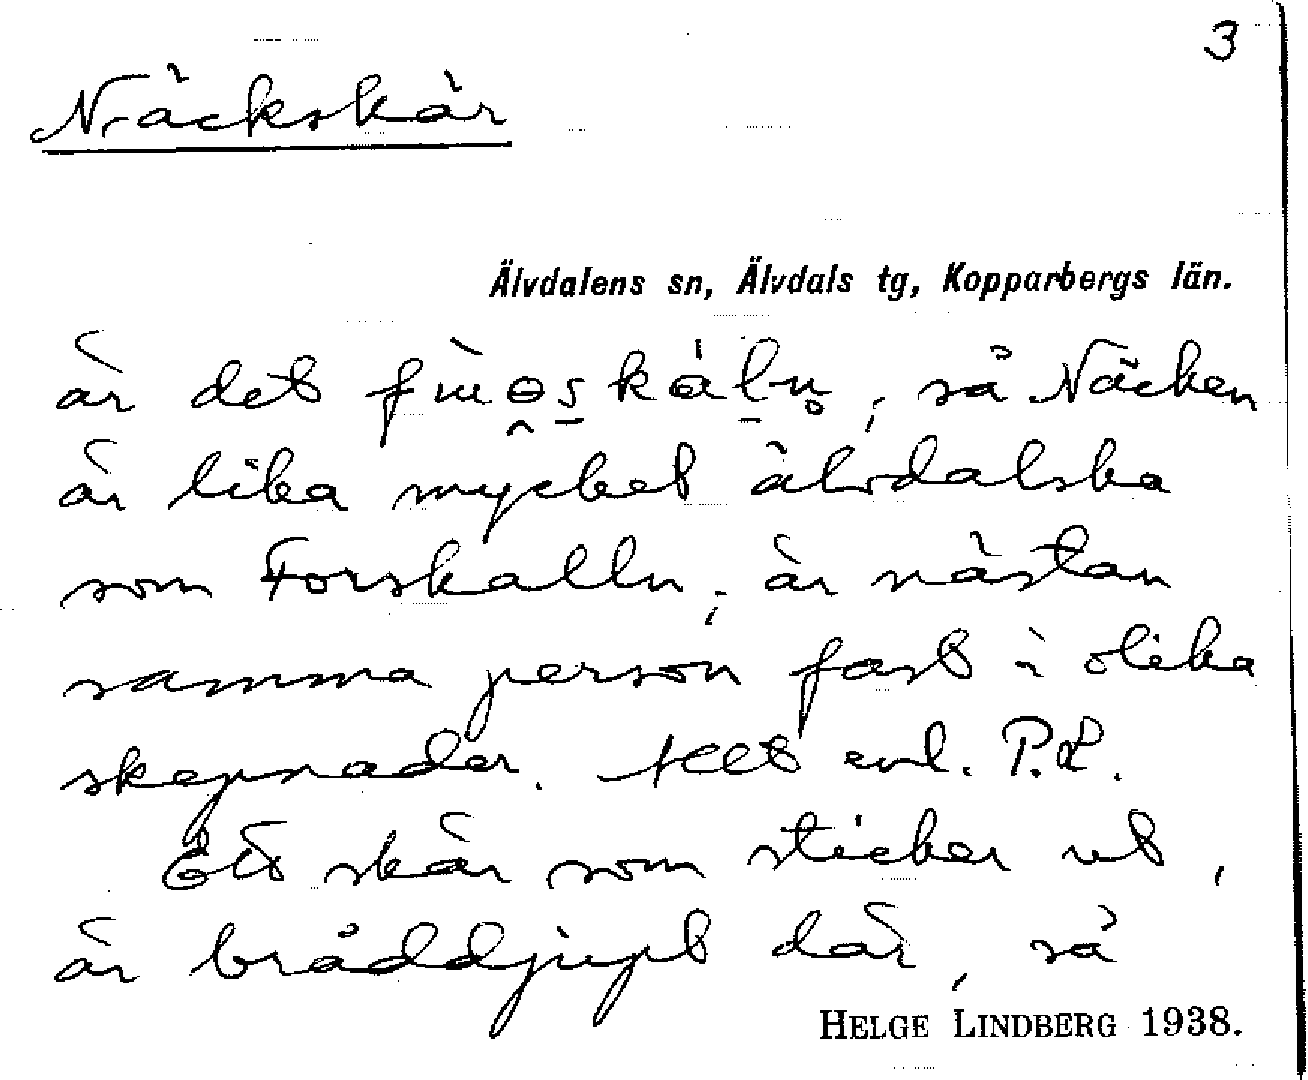 3
Näckskär
Älvdalens sn, Älvdals tg, Kopparbergs län.
är det , så Näcken
är lika mycket älvdalska
som Forskalln, är nästan
samma person fast i olika
skepnader. Allt enl. P.L.
Ett skär som sticker ut,
är bråddjupt där, så
HELGE LINDBERG 1938.